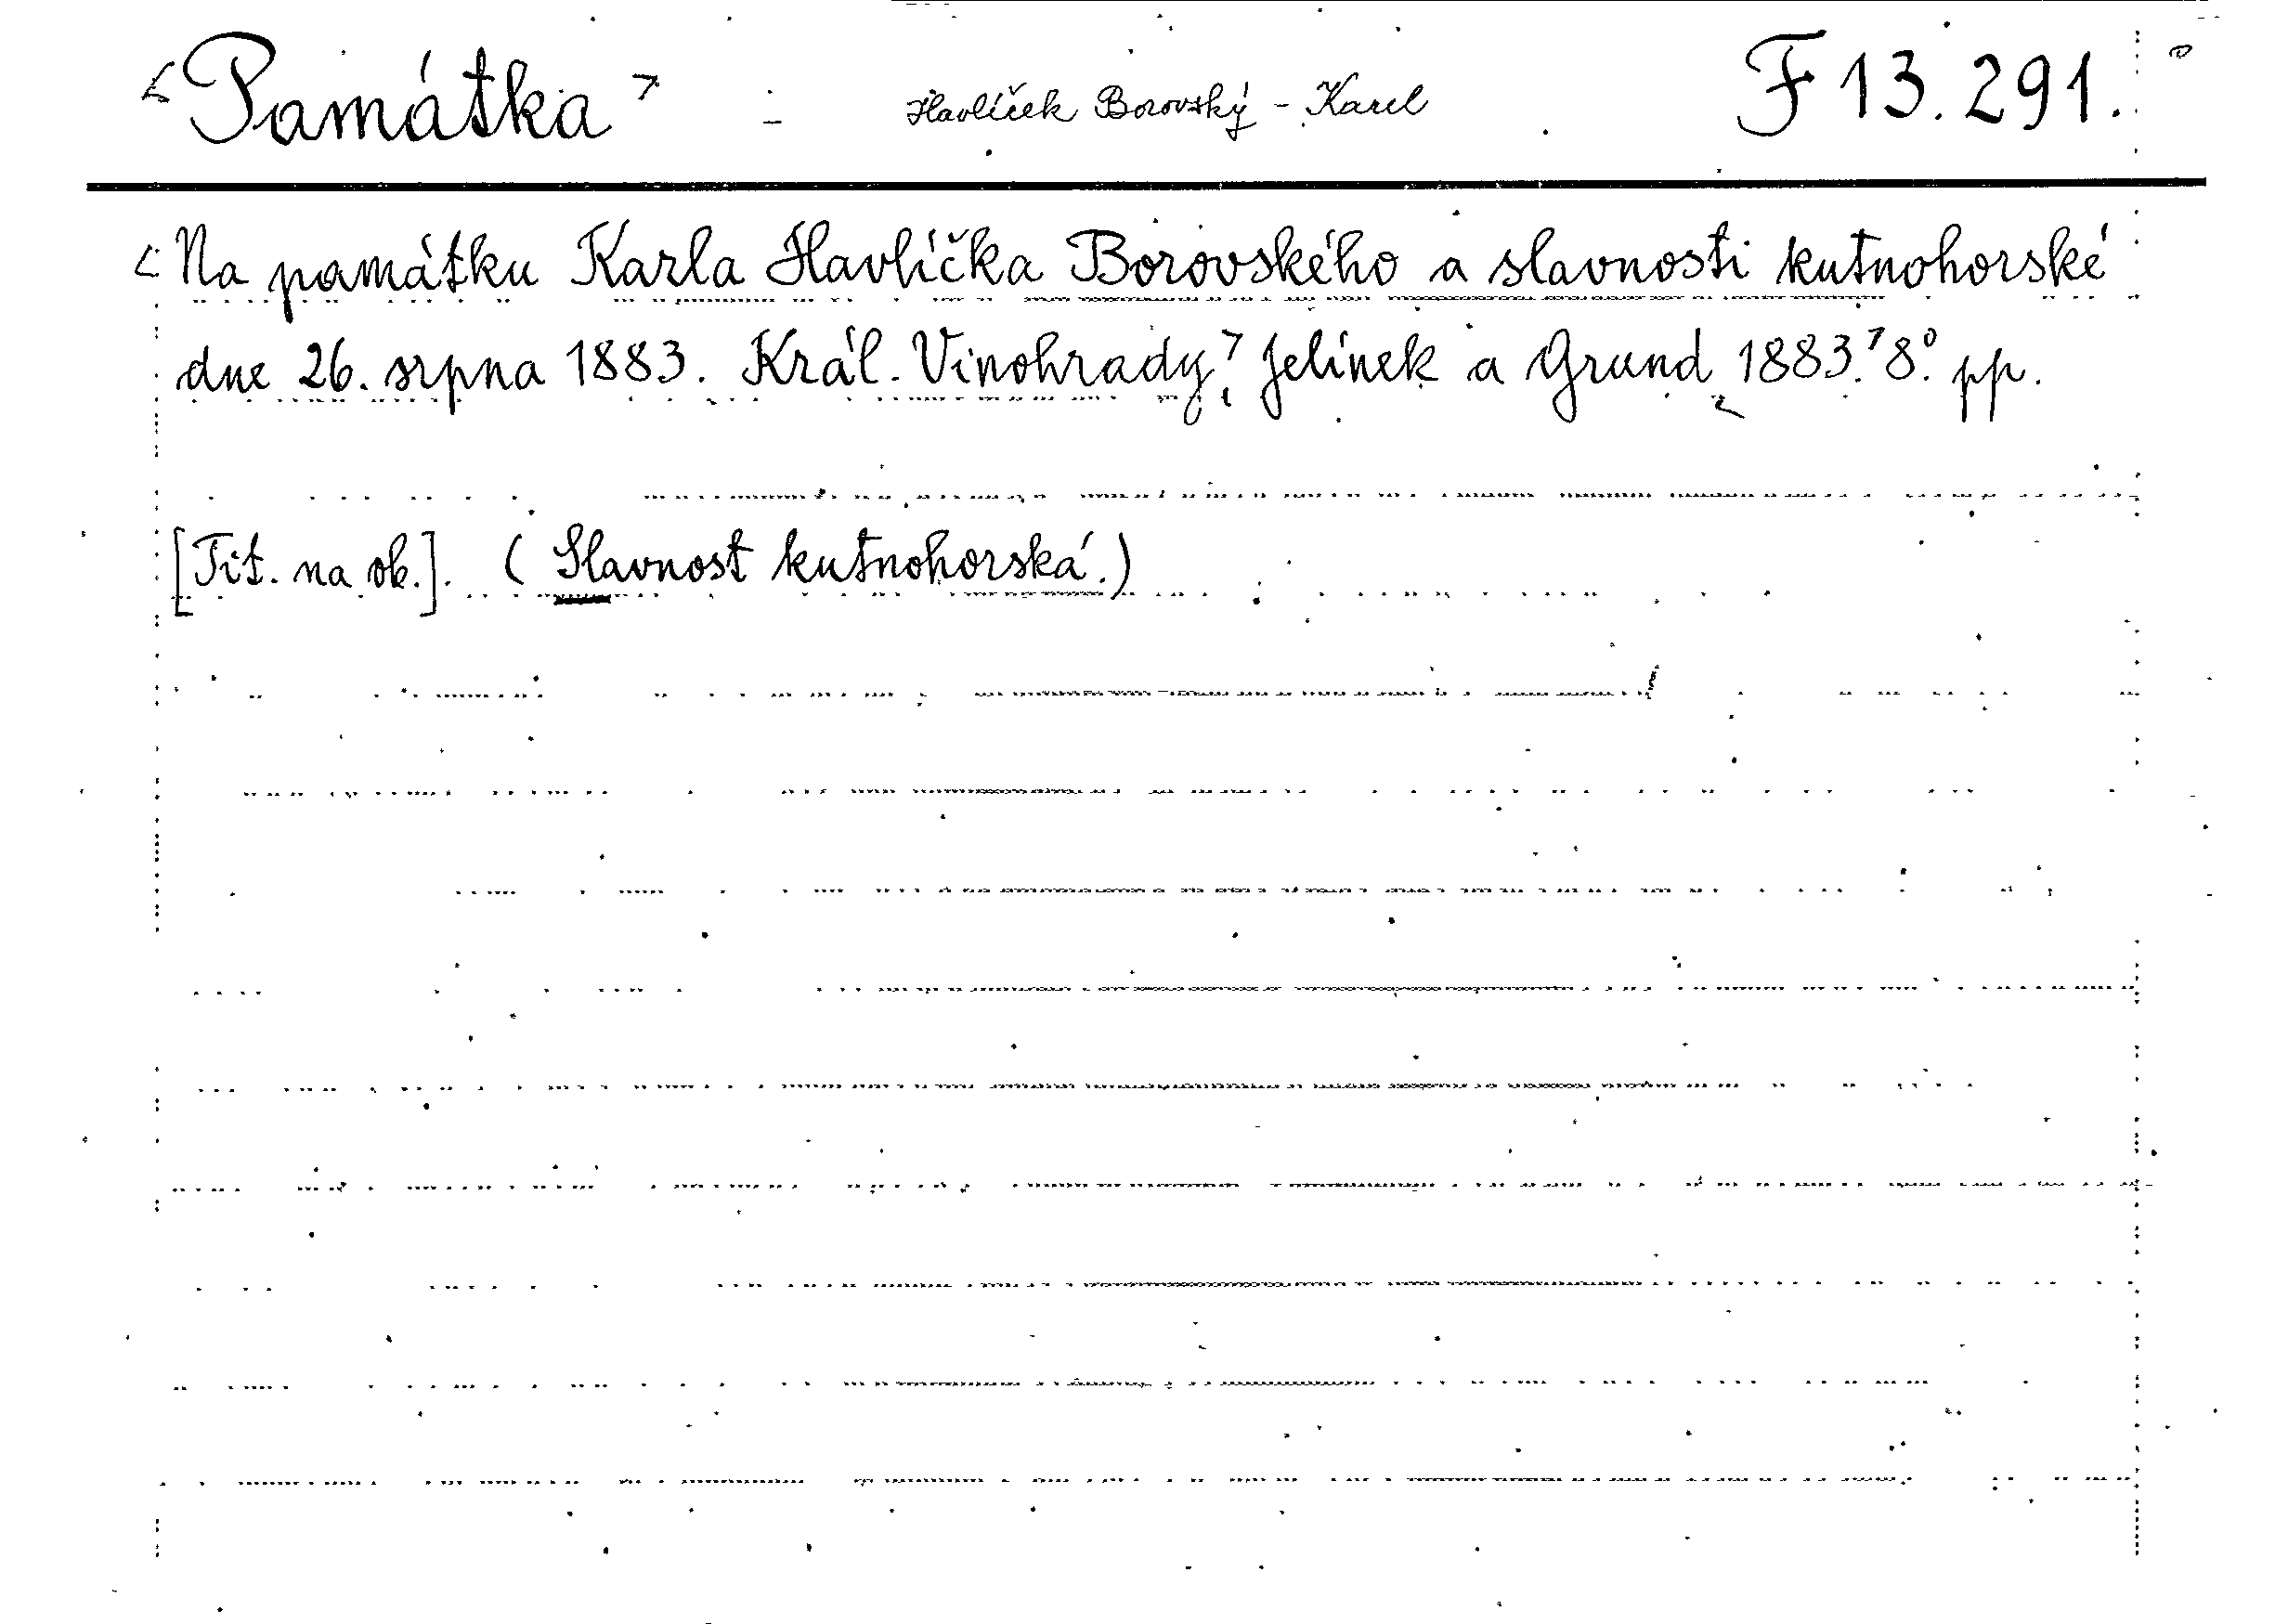 <Památka> - Havlíček Borovský - Karel F 13.291.
<Na památku Karla Havlíčka Borovského a slavnosti kutnohorské
dne 26. srpna 1883. Král. Vinohrady,> Jelínek a Grund <1883.> 8.° pp.
[Tit. na ob.]. (Slavnost kutnohorská.)